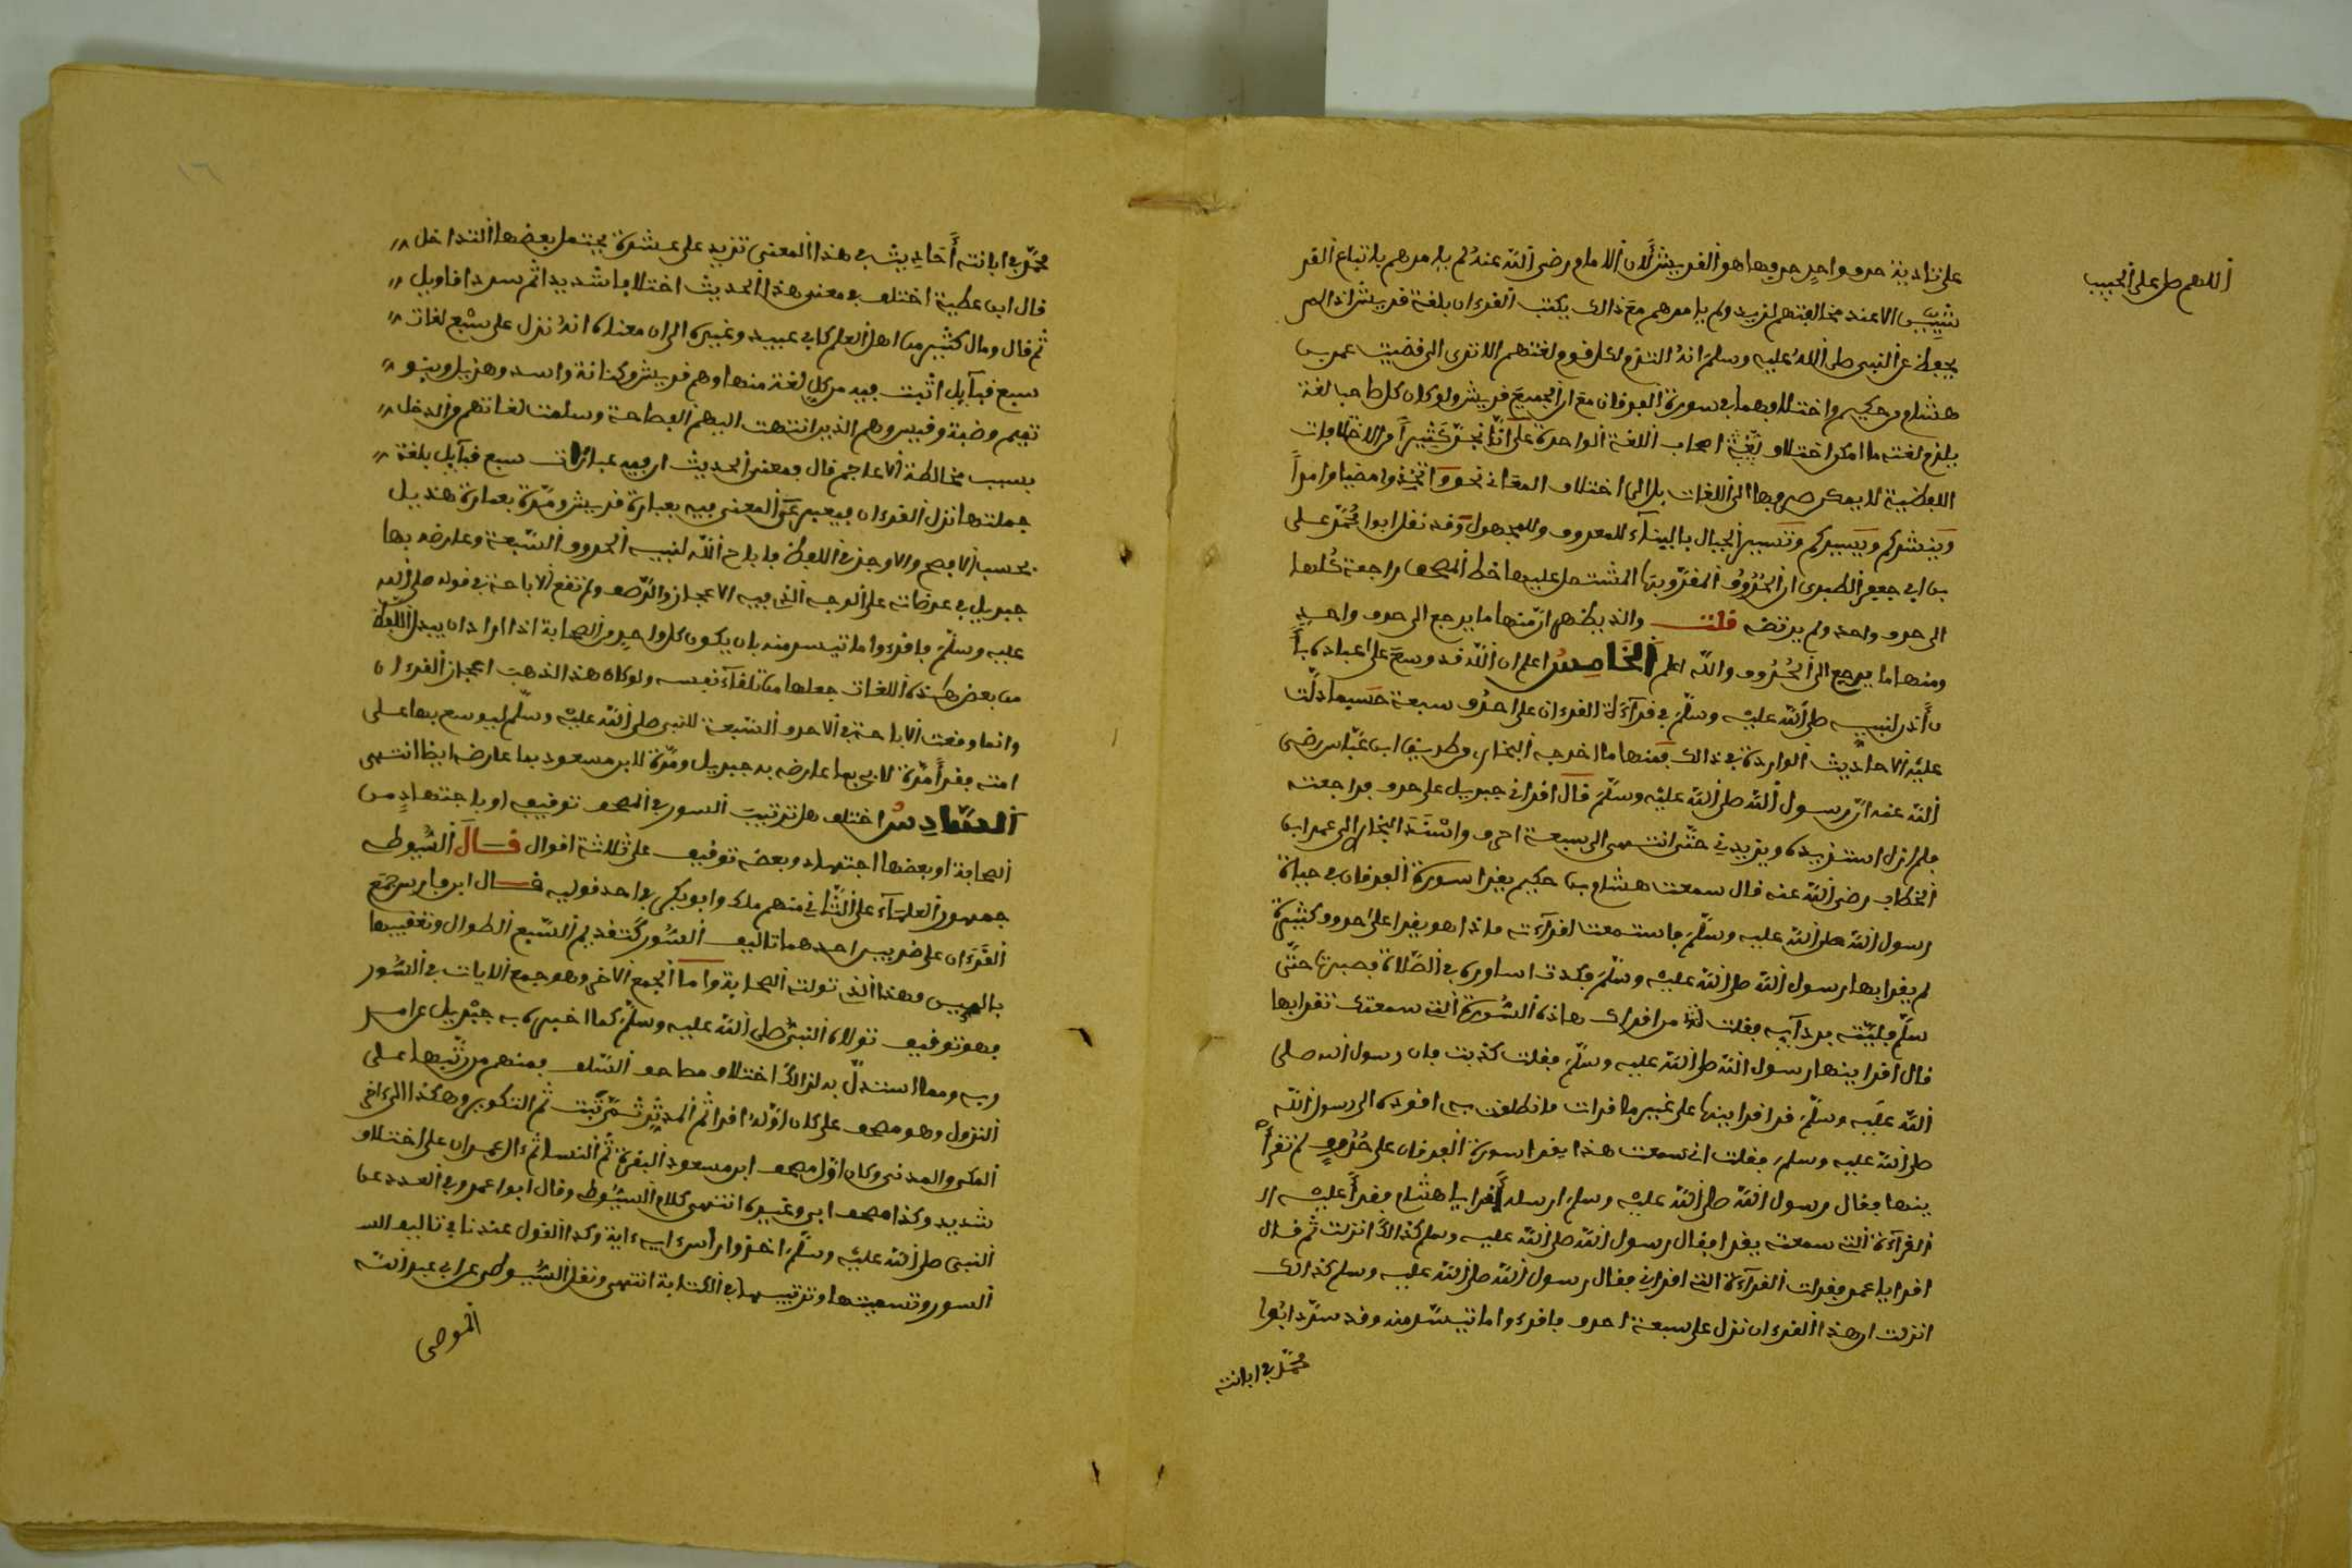 اللهم صل على الحبيب
على تادية حرف واحد حروفها هو القريش لان الامام رضي الله عنه لم يامرهم باتباع القر
شيين الا عند مخالفتهم لزيد ولم يامرهم مع ذالك بكتب القرءان بلغة قريش اذ لم
يحفظ عن النبي صلى الله عليه وسلم انه التزم لكل قوم لغتهم الا ترى الى قضيت عمر بن
هشام بن حكيم واختلافهما في سورة الفرقان مع ان الجميع قريش ولو كان كل صاحب لغة
يلزم لغته ما امكن اختلاف بقية اصحاب اللغة الواحدة على انا نجد كثيرا من الاختلافات
اللفظية لا يمكن صرفها الى اللغات بل الى اختلاف المعاني نحو واتخذوا مضيا وامرا
وينشركم ويسيركم وتسير الجبال بالبناء للمعروف وللمجهول وقد نقل ابوا محمد على
بن ابي جعفر الطبري ان الحروف المقروبها المشتمل عليها خط المصحف راجعة كلها
الى حرف واحد ولم يرتضه قلت والذي يظهر ان منها ما يرجع الى حرف واحد
ومنها ما يرجع الى الحروف والله اعلم الخامس اعلم ان الله قد وسع على عباده بأ
ن أذن لنبيه صلى الله عليه وسلم في قرآءة القرءان على احرف سبعة حسبما دلت
عليه الاحاديث الواردة في ذالك فمنها ما اخرجه البخاري من طريق ابن عباس رضي
الله عنه ان رسول الله صلى الله عليه وسلم قال اقراني جبريل على حرف فراجعته
فلم ازل استزيده ويزيدني حتى انتهى الى سبعة احرف واسند البخاري الى عمر ابن
الخطاب رضي الله عنه قال سمعت هشام بن حكيم يقرا سورة الفرقان في حياة
رسول الله صلى الله عليه وسلم فاستمعت لقرآءته فاذا هو يقرا على احرف كثيرة
لم يقرابها رسول الله صلى الله عليه وسلم فكدت اساوره في الصلاة فصبرت حتى
سلم فلببته بردآيه فقلت له من اقراك هاذه السورة التي سمعتك تقرابها
قال اقرا ينها رسول الله صلى الله عليه وسلم فقلت كذبت فان رسول الله صلى
الله عليه وسلم قد اقرا ينها على غير ما قرات فانطلقت به اقوده الى رسول الله
صلى الله عليه وسلم فقلت اني سمعت هذا يقرا سورة الفرقان على حروف لم تقرأ
ينها فقال رسول الله صلى الله عليه وسلم ارسله اقرا يا هشام فقرأ عليه ال
القرآءة التي سمعته يقرا فقال رسول الله صلى الله عليه وسلم كذالك انزلت ثم قال
اقرا يا عمر فقرات القرآءة التي اقراني فقال رسول الله صلى الله عليه وسلم كذالك
انزلت ان هذا القرءان نزل على سبعة احرف فاقرءوا ما تيسر منه وقد سرد ابوا
محمد في ابانته
١٦
محمد في ابانته أحاديث في هذا المعنى تزيد على عشرة يحتمل بعضها التداخل
قال ابن عطية اختلف في معنى هذا الحديث اختلافا شديدا ثم سرد اقاويل
ثم قال ومال كثير من اهل العلم كابي عبيد وغيره الى ان معناه انه نزل على سبع لغات
سبع قبآيل اثبت فيه من كل لغة منها وهم قريش وكنانة واسد وهزيل وبنو
تميم وضبة وقيس وهم الذين انتهت اليهم الفصاحة وسلمت لغاتهم من الدخل
بسبب مخالطة الاعاجم قال ومعنى الحديث ان فيه عبارات سبع قبآيل بلغة
جملتها نزل القرءان فيعبر عن المعنى فيه بعبارة قريش ومرة بعبارة هذيل
بحسب الافصح والاوجز في اللفظ فاباح الله لنبيه الحروف السبعة وعارضه بها
جبريل في عرضاته على الوجه الذي فيه الاعجاز والرصف ولم تقع الاباحة في قوله صلى الله
عليه وسلم فاقرءوا ما تيسر منه بان يكون كل واحد من الصحابة اذا اراد ان يبدل اللفظ
من بعض هذه اللغات جعلها من تلقاء نفسه ولو كان هذا لذهب اعجاز القرءان
وانما وقعت الاباحة في الاحرف السبعة للنبي صلى الله عليه وسلم ليوسع بها على
امته فقرأ مرة لابي بما عارضه به جبريل ومرة لابن مسعود بما عارضه ايضا انتهى
السادس اختلف هل ترتيب السور في المصحف توقيف او باجتهاد من
الصحابة او بعضها اجتهاد وبعض توقيف على ثلاثة اقوال قال السيوطي
جمهور العلمآء على الثاني منهم ملك وابو بكر في واحد قوليه قال ابن فارس جمع
القرءان على ضربين احدهما تاليف السور كتقديم السبع الطوال وتعقيبها
بالميين وهذا الذي تولته الصحابة واما الجمع الاخر وهو جمع الايات في السور
فهو توقيف تولاه النبي صلى الله عليه وسلم كما اخبره به جبريل عن امر
ربه ومما استدل به لذالك اختلاف مصاحف السلف فمنهم من رتبها على
النزول وهو مصحف علي كان اوله اقرا ثم المدثر ثم تبت ثم التكوير وهكذا الى اخر
المكي والمدني وكان اول مصحف ابن مسعود البقرة ثم النسا ثم ءال عمران على اختلاف
شديد وكذا مصحف ابي وغيره انتهى كلام السيوطي وقال ابوا عمرو في العدد عن
النبي صلى الله عليه وسلم اخذوا رأس ءاية ءاية وكذا القول عندنا في تاليف ال
السور وتسميتها وترتيبها في الكتابة انتهى ونقل السيوطي عن ابي عبد الله